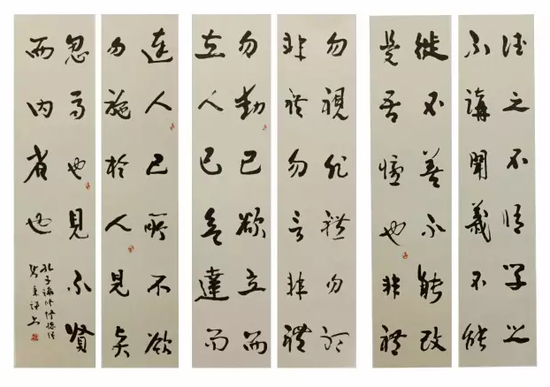 德之不脩學之
不講聞義不能
徙不善不能改
是吾憂也非禮
勿視非禮勿聽
非禮勿言非禮
勿動己欲立而
立人己欲達而
達人己所不欲
勿施於人見賢
思齊也見不賢
而內省也
孔子論